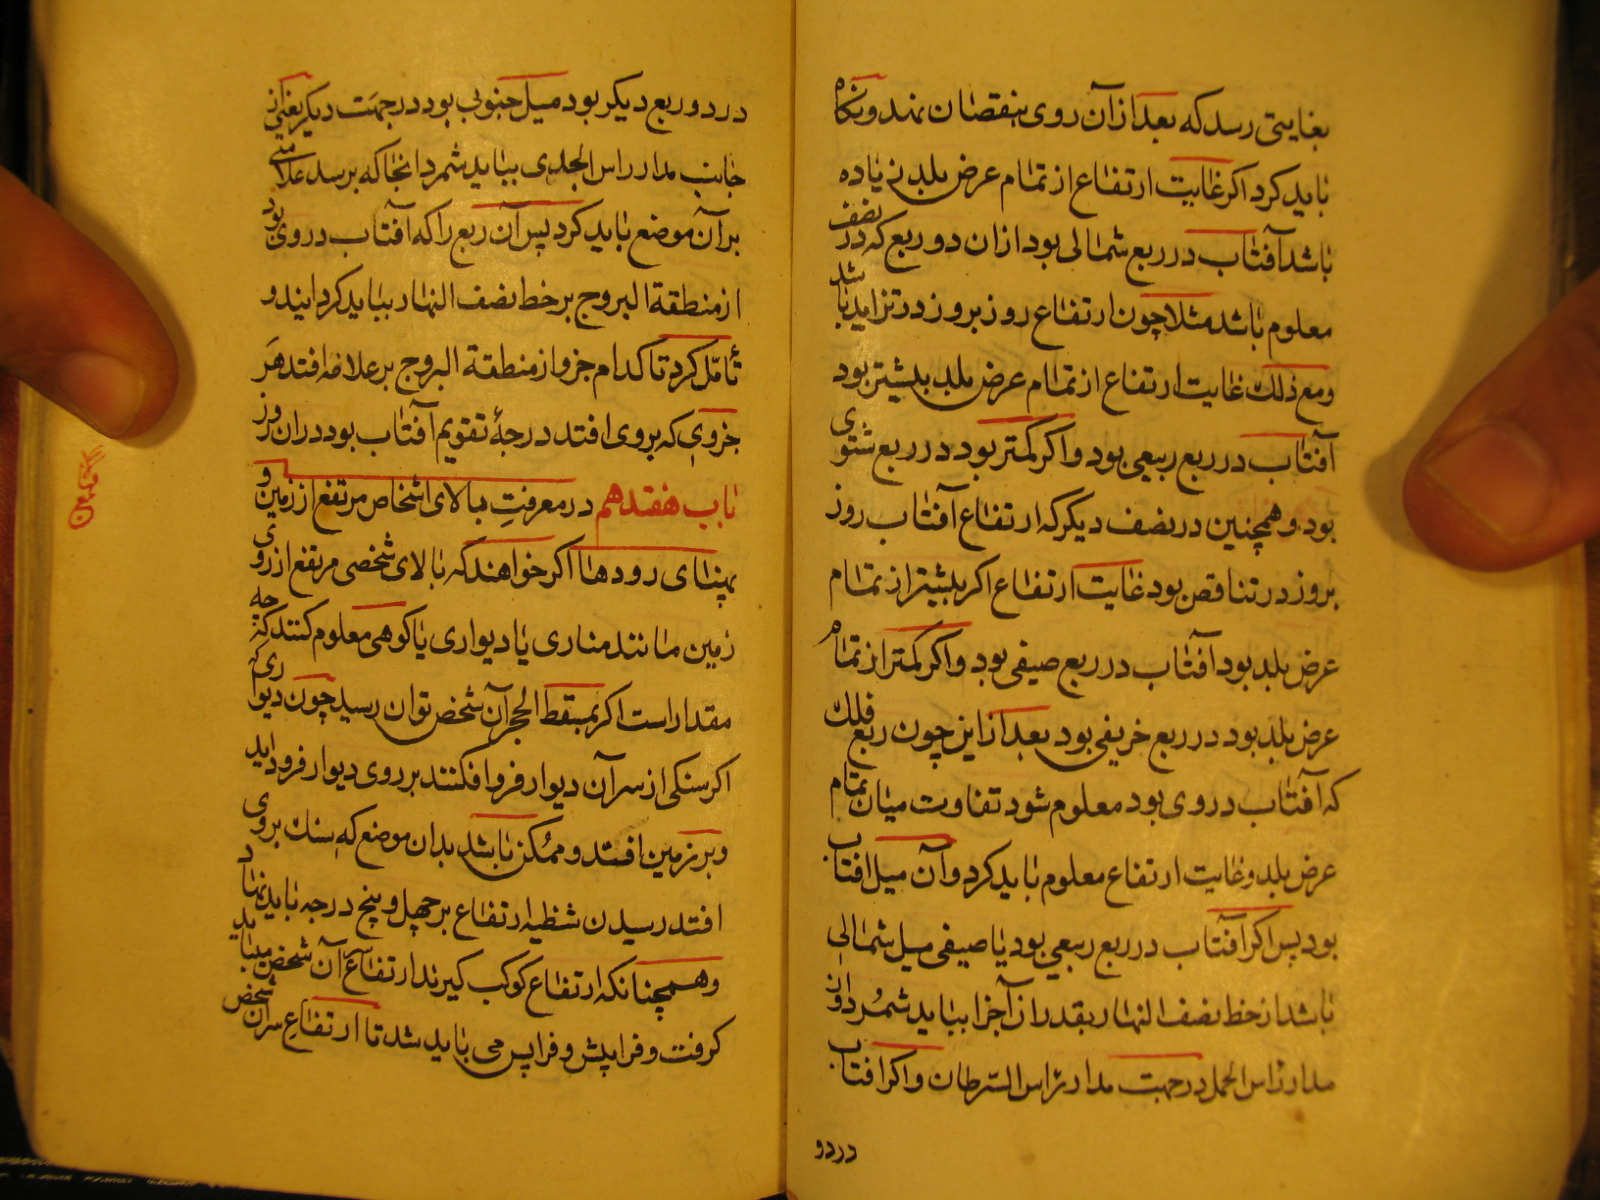 بغایتی رسد که بعد از آن روی بنقصان نهد و نکاه
باید کرد اکر غایت ارتفاع از تمام عرض بلد زیاده
باشد آفتاب در ربع شمالی بود ازان دو ربع که در نصف
معلوم باشد مثلا چون ارتفاع روز بروز در تزاید باشد
ومع ذلک غایت ارتفاع از تمام عرض بلد بیشتر بود
آفتاب در ربع ربیعی بود واکر کمتر بود در ربع شتوی
بود وهمچنین در نصف دیکر که ارتفاع آفتاب روز
بروز در تناقص بود غایت ارتفاع اکر بیشتر از تمام
عرض بلد بود افتاب در ربع صیفی بود واکر کمتر از تمام
عرض بلد بود در ربع خریفی بود بعد از این چون ربع فلک
که آفتاب در وی بود معلوم شود تفاوت میان تمام
عرض بلد وغایت ارتفاع معلوم باید کرد وآن میل افتاب
بود پس اکر آفتاب در ربع ربیعی بود یا صیفی میل شمالی
باشد از خط نصف النهار بقدر ان آجزا بباید شمرد از
مدار راس الحمل در جهت مدار راس السرطان واکر افتاب
در دو
در دو ربع دیکر بود میل جنوبی بود در جهت دیکر یعنی از
جانب مدار راس الجدی بباید شمرد انجا که برسد علامتی
بر آن موضع باید کرد پس آن ربع را که آفتاب در وی بود
از منطقة البروج بر خط نصف النهار بباید کردانید و
تامّل کرد تا کدام جزو از منطقة البروج بر علامه افتد هر
جزوی که بر وی افتد درجهٔ تقویم آفتاب بود در ان روز
باب هفدهم در معرفتِ بالای اشخاص مرتفع از زمین و
پهنای رودها اکر خواهند که بالای شخصی مرتفع از روی
زمین مانند مناری یا دیواری یا کوهی معلوم کنند که چه
مقدار است اکر بمسقط الحجر آن شخص توان رسید چون دیواری که
اکر سنکی از سر آن دیوار فرو افکنند بر روی دیوار فرود اید
وبر زمین افتد وممکن باشد بدان موضع که سنک بروی
افتد رسیدن شظیه ارتفاع بر چهل وپنج درجه باید نهاد
وهمچنانکه ارتفاع کوکب کیرند ارتفاع سر آن شخص بباید
کرفت وفرا پیش وفرا پس می باید شد تا ارتفاع سر ان شخص